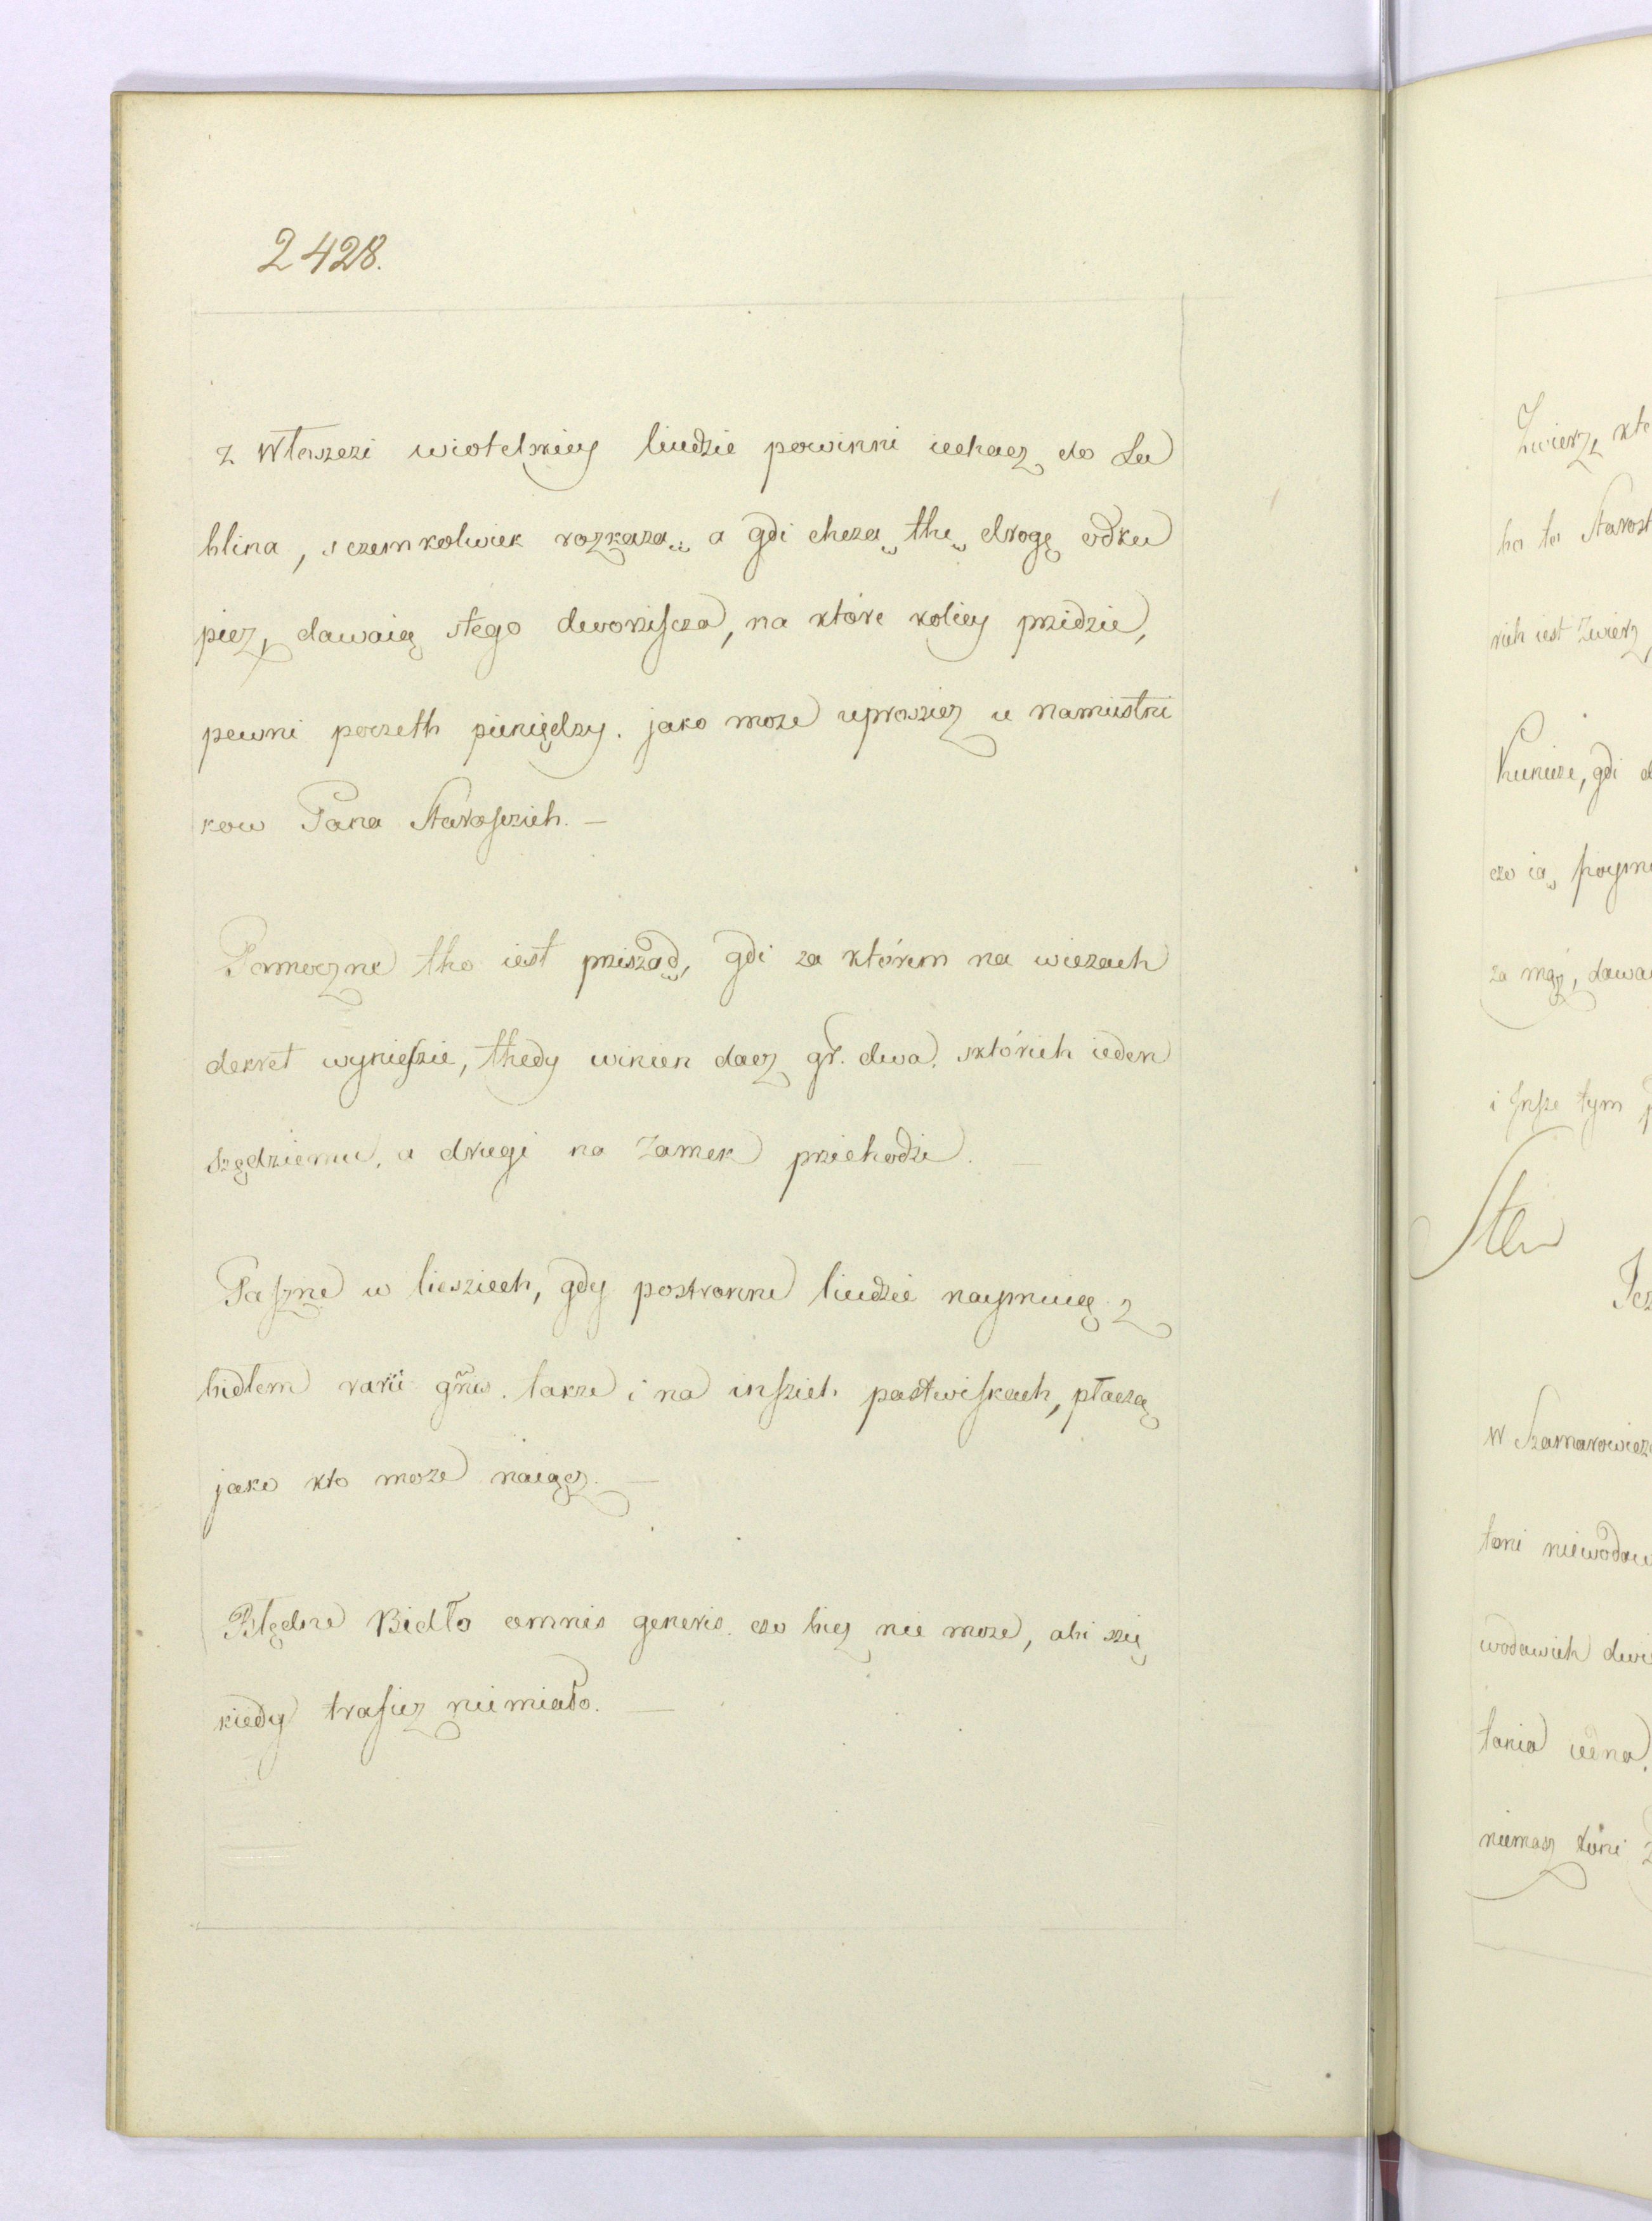 2428.
z Włosczi wiotelskiey liudzie powinni iechacz do Lu
blina, sczemkolwiek rozkazą, a gdi chczą thę drogę odku
picz, dawaią stego dworziscza, na które koliey przidzie,
pewni poczeth pieniędzy. jako moze uproszicz u namiestni
kow Pana Starosczich. —
Pomoczne tho iest przisząd, gdi za którem na wiczach
dekret wyniesie, thedy winien dacz gr. dwa. sktórich ieden
szędziemu, a drugi na Zamek przichodzi. —
Paszne w liesziech, gdy postronni liudzie naymuię z
bidłem varii gñis. takze i na inszich pastwiskach, płaczą
jako kto moze naiącz. —
Błędne Bidło omnis generis. czo bicz nie moze, abi szię
kiedy traficz niemiało. —
Zwierz, kto
ba to Starost
rich iest Zwierz,
Kunicze, gdi
czo ią poyma
za mąz, dawa
i insze tym
Staw
W Szamarowicz
toni niewodow
wodowich dwi
tonia iedna.
niemasz toni